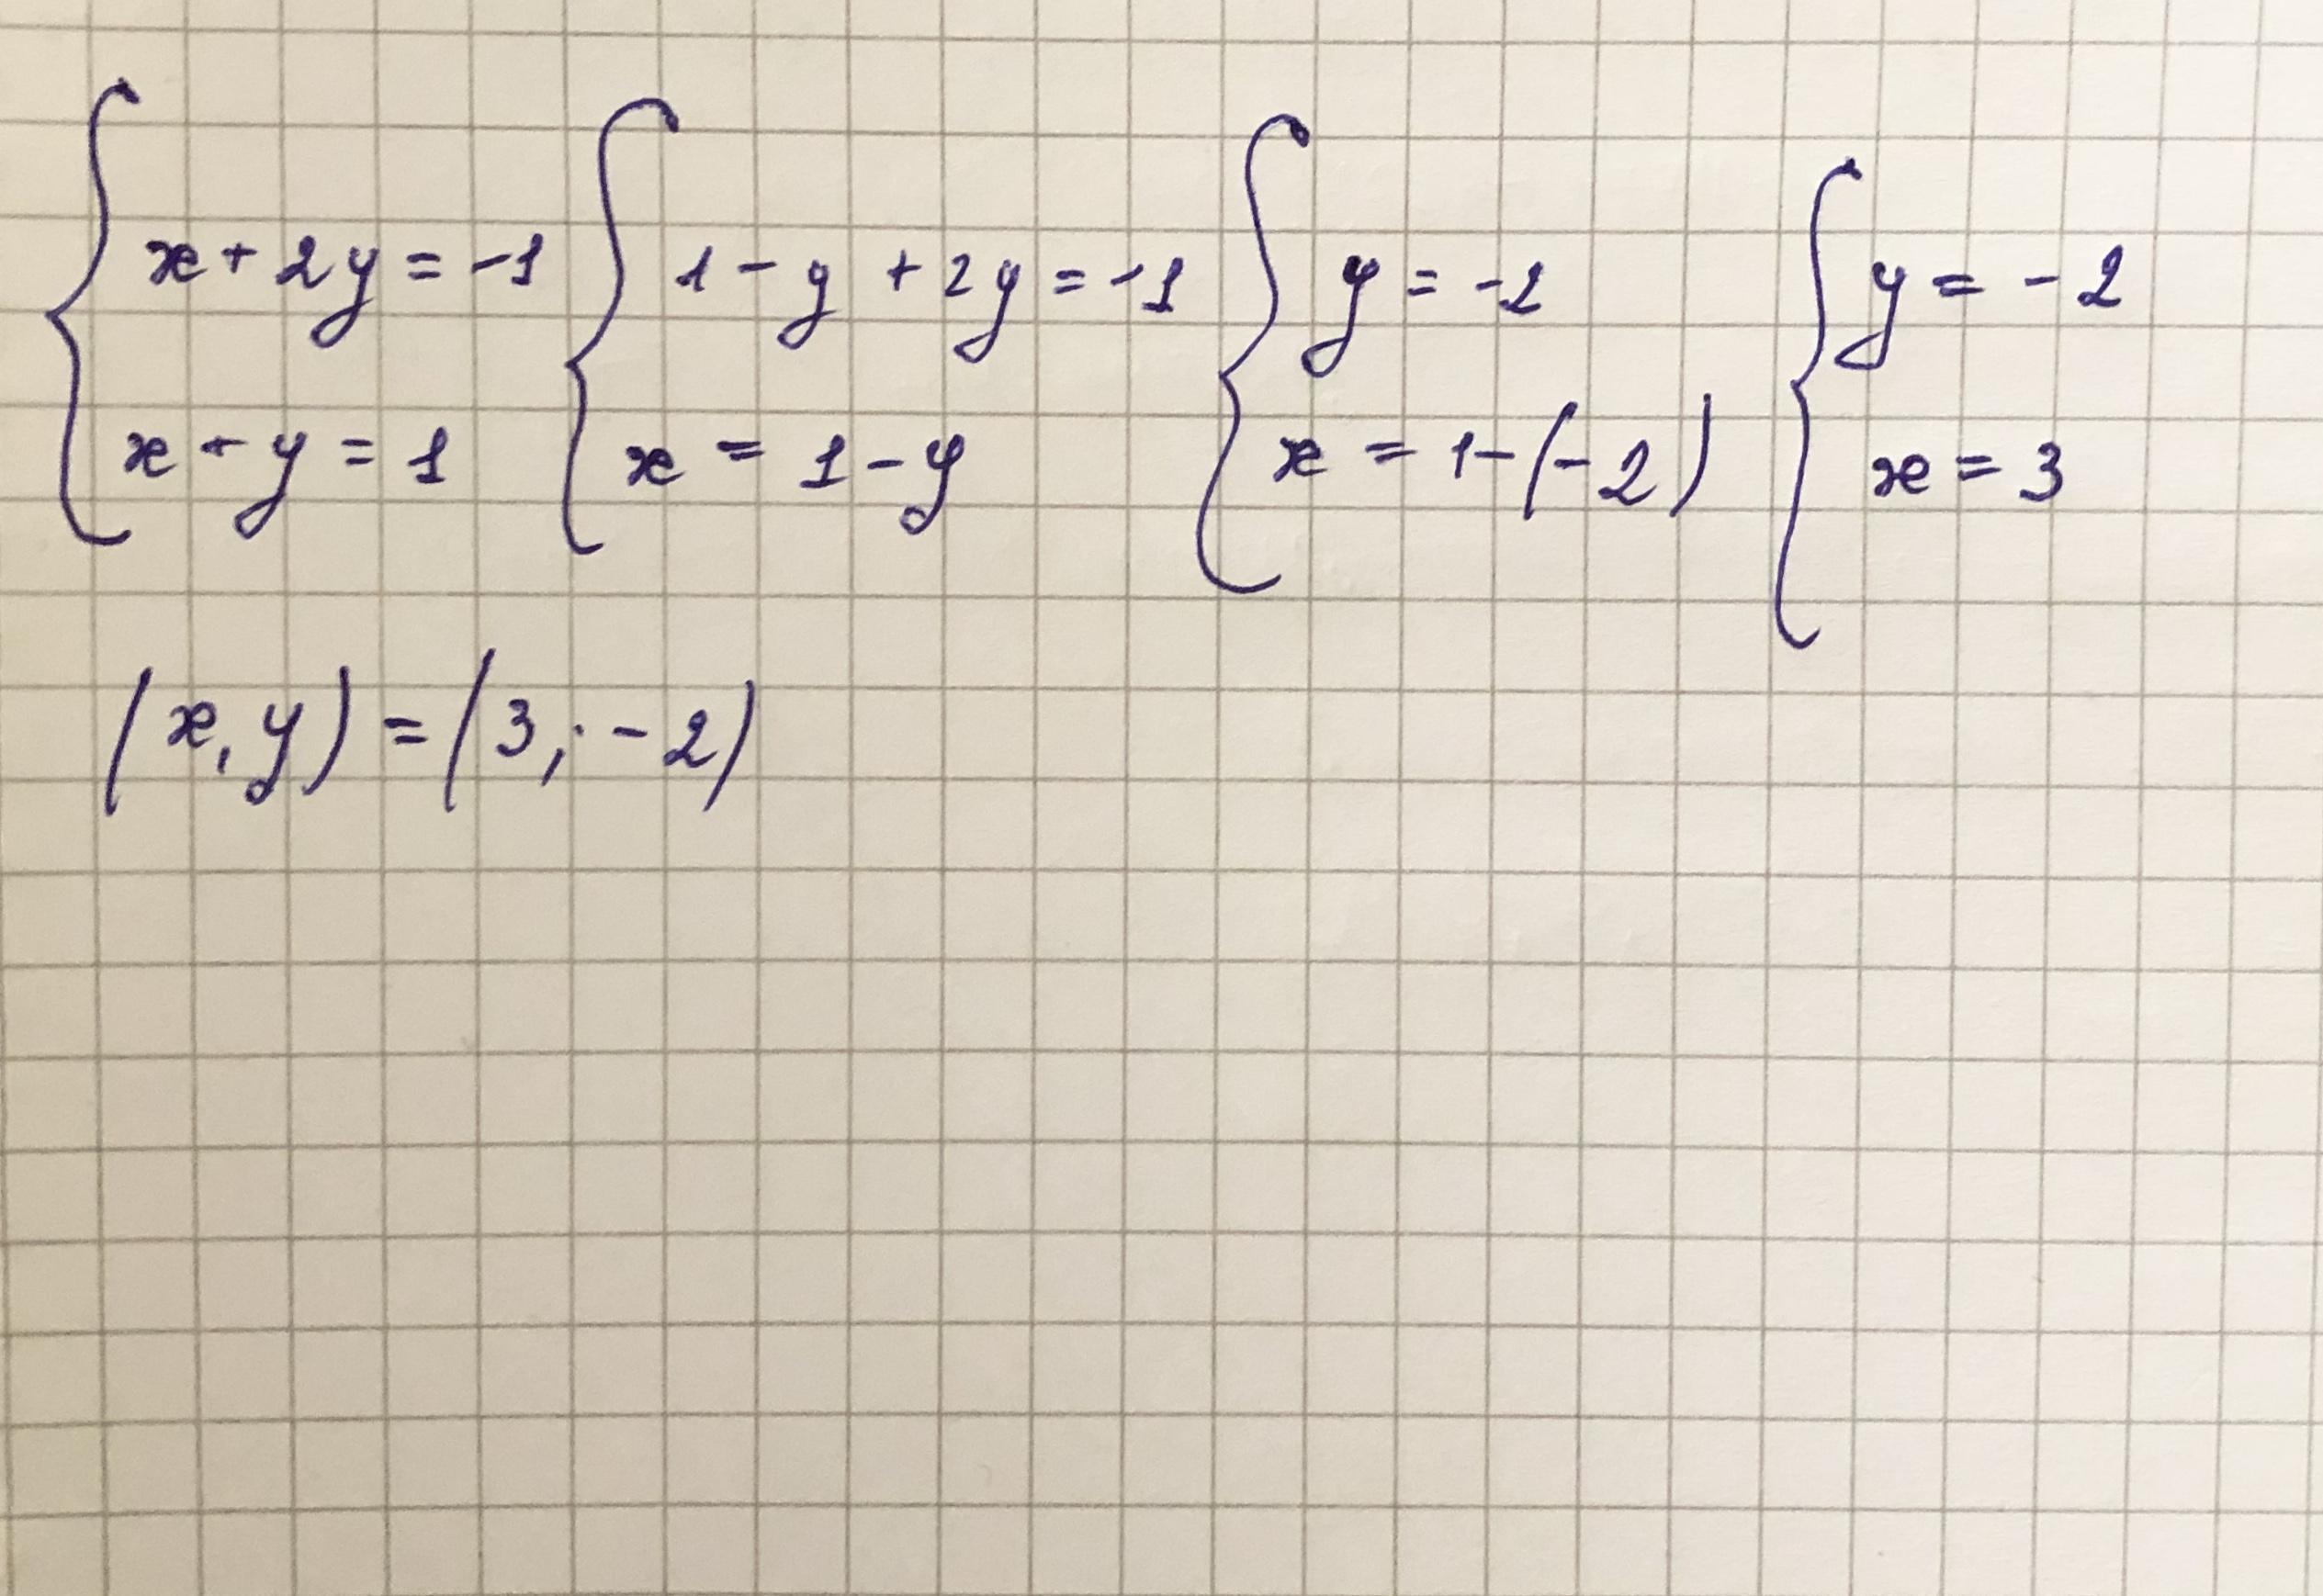 x + 2y = -1
x + y = 1
1 - y + 2y = -1
x = 1 - y
y = -2
x = 1 - (-2)
y = -2
x = 3
(x, y) = (3; -2)